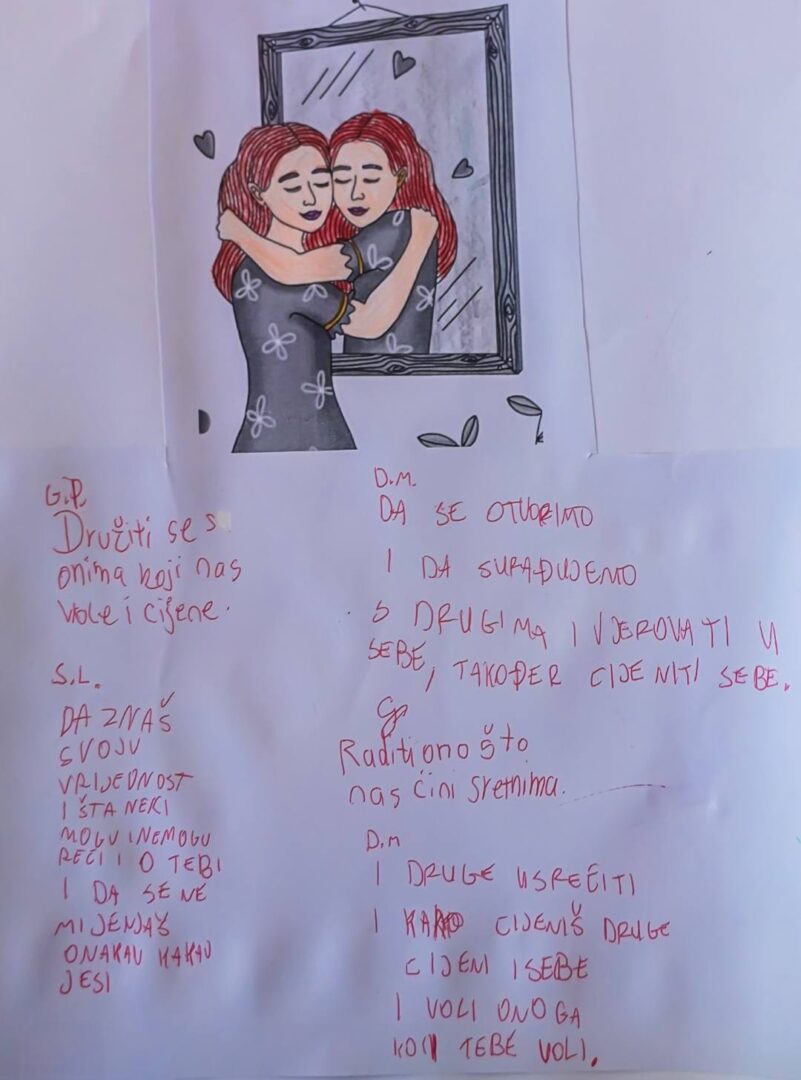 G.P.
Družiti se s
onima koji nas
vole i cijene.
S.L.
DA ZNAŠ
SVOJU
VRIJEDNOST
I ŠTA NEKI
MOGU I NEMOGU
REĆI I O TEBI
I DA SE NE
MIJENJAŠ
ONAKAV KAKAV
JESI
D.M.
DA SE OTVORIMO
I DA SURAĐUJEMO
S DRUGIMA I VJEROVATI U
SEBE, TAKOĐER CIJENITI SEBE.
GP
Raditi ono što
nas čini sretnima.
D.M
I DRUGE USREĆITI
I KAKO CIJENIŠ DRUGE
CIJENI I SEBE
I VOLI ONOGA
KOJI TEBE VOLI.